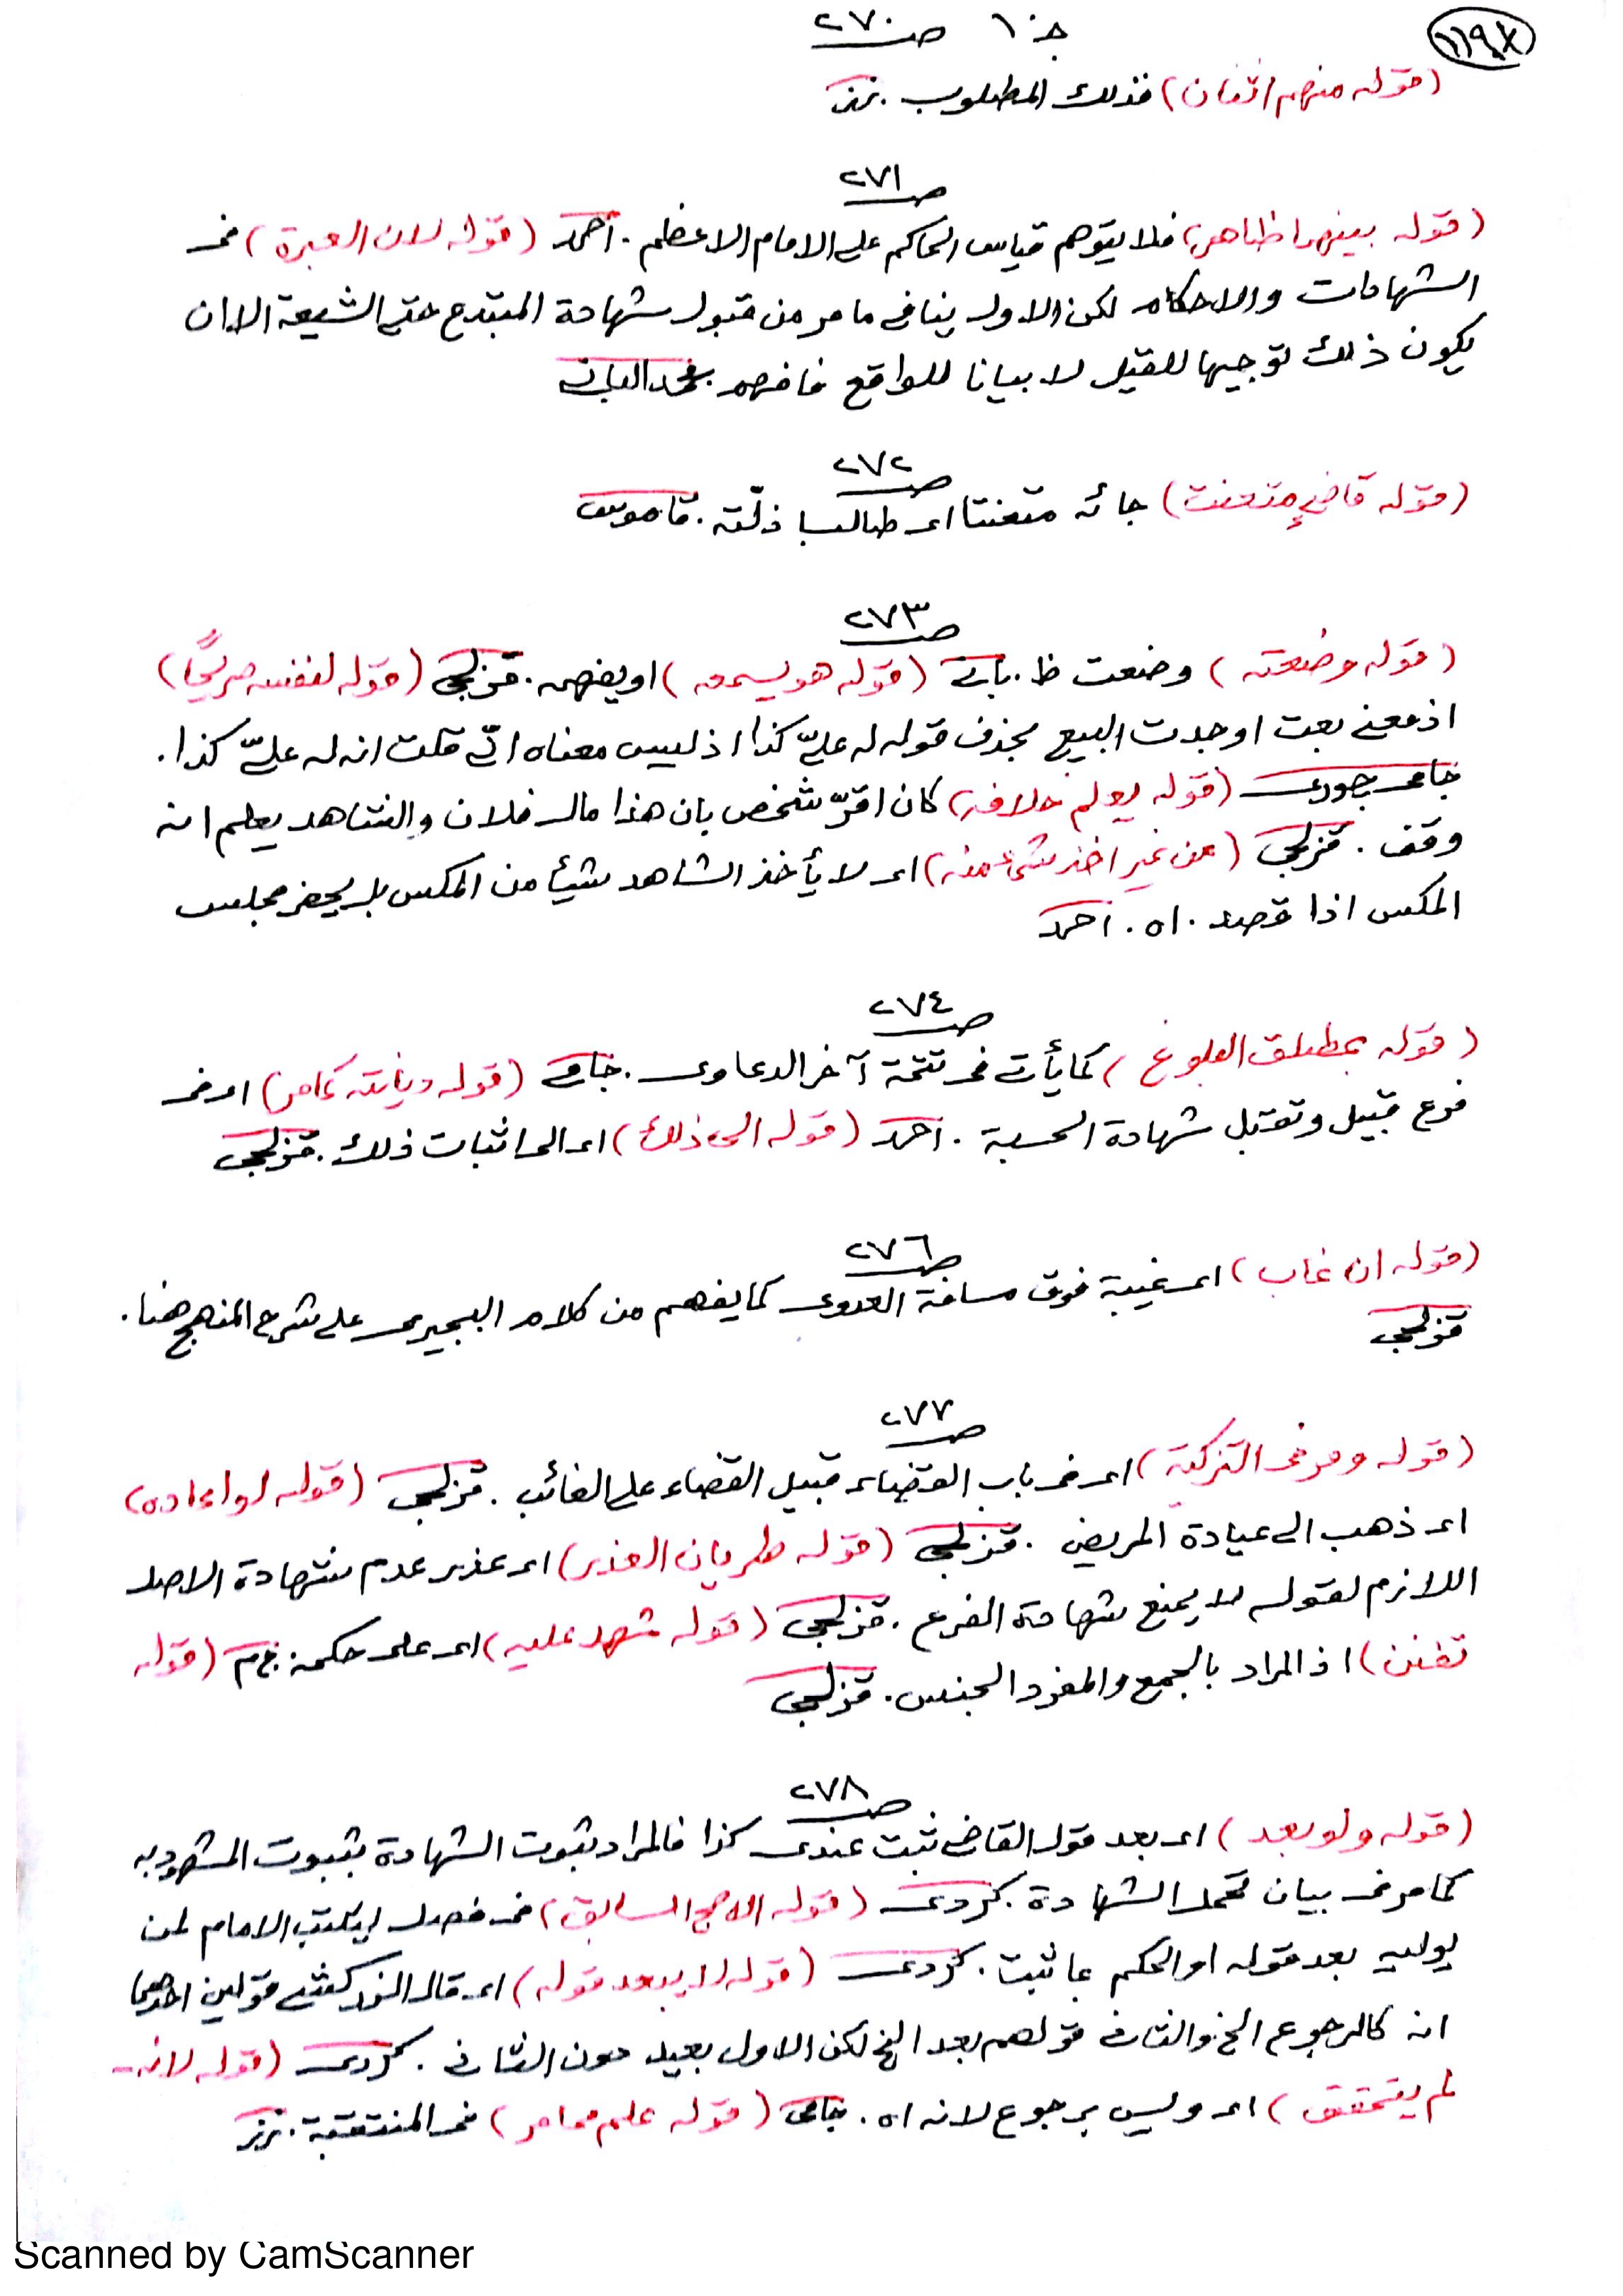 جـ ١٠ صـ ٢٧٠
(قوله منهم اثنان) فذلك المطلوب.
صـ ٢٧١
(قوله بينهما ظاهر) فلا يتوهم قياس الحاكم على الامام الاعظم. احمد (قوله لان العبرة) فى
الشهادات والاحكام لكن الاول ينافى ما مر من قبول شهادة المبتدع حتى الشيعة الا ان
يكون ذلك توجيها للقيل لا بيانا للواقع فافهم.
صـ ٢٧٢
(قوله قاضٍ متعنت) جائه متعنتا اى طالبا زلّته. قاموس
صـ ٢٧٣
(قوله وضعته) وضعت ظ. بانى (قوله هو يسمعه) او يفهمه. قزلجى (قوله لنفسه صريحًا)
اذ معنى بعت اوجدت البيع بخلاف قوله له علىّ كذا اذ ليس معناه انّى قلت انه له علىّ كذا.
(قوله يعلم خلافه) كان اقرّ شخص بان هذا مال فلان والشاهد يعلم انه
وقف. قزلجى (من غير اخذ شئ منه) اى لا يأخذ الشاهد شيئا من المكس بل يحضر مجلس
المكس اذا قصد. اه. احمد
صـ ٢٧٤
(قوله بمطلق البلوغ) كما يأتى فى تتمة آخر الدعاوى. (قوله ديانته كما مر) اى فى
فرع قبيل وتقبل شهادة الحسبة. احمد (قوله الى ذلك) اى الى اثبات ذلك. قزلجى
صـ ٢٧٦
(قوله ان غاب) اى غيبة فوق مسافة العدوى كما يفهم من كلام البجيرمى على شرح المنهج هنا.
قزلجى
صـ ٢٧٧
(قوله ومر فى التزكية) اى فى باب القضاء قبيل القضاء على الغائب. قزلجى (قوله لو اعاده)
اى ذهب الى عيادة المريض. قزلجى (قوله طريان العذر) اى عذر عدم شهادة الاصل
اللازم لقوله لا يمنع شهادة الفرع. قزلجى (قوله شهد عليه) اى على حكمه. (قوله
تفنن) اذ المراد بالجمع والمفرد الجنس. قزلجى
صـ ٢٧٨
(قوله ولو بعد) اى بعد قول القاضى ثبت عندى كذا فالمراد ثبوت الشهادة بثبوت المشهود به
كما مر فى بيان تحمل الشهادة. كردى (قوله الاصح السابق) فى فصل ليكتب الامام لمن
يوليه بعد قوله او الحكم بما ثبت. كردى (قوله لا يبعد قوله) اى قال الزركشى قولين احدهما
انه كالرجوع الخ والثانى قولهم بعد الخ لكن الاول بعيد دون الثانى. كردى (قوله لانه-
لم يتحقق) اى وليس برجوع لانه اه. (قوله علم مما مر) فى المنتقبة.
Scanned by CamScanner